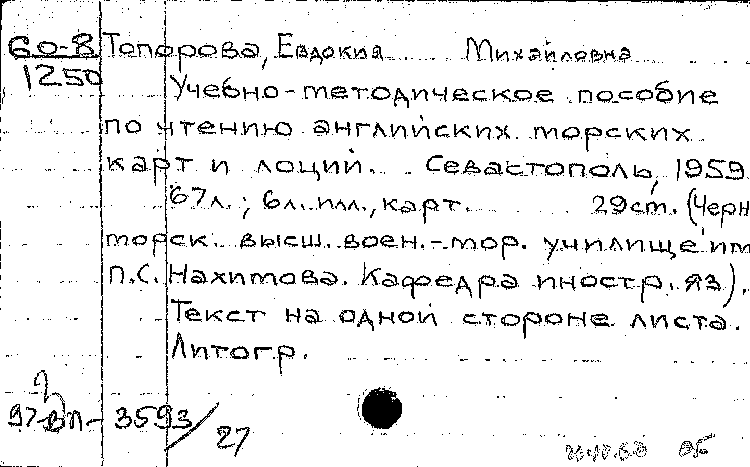 60-8 Топорова, Евдокия Михайловна
1250
Учебно-методическое пособие
по чтению английских морских
карт и лоций. Севастополь, 1959
67л.; 6л. илл., карт. 29см. (Черн
морск. высш. воен.-мор. училище им
П.С. Нахимова. Кафедра иностр. яз).
Текст на одной стороне листа.
Литогр.
3593/27